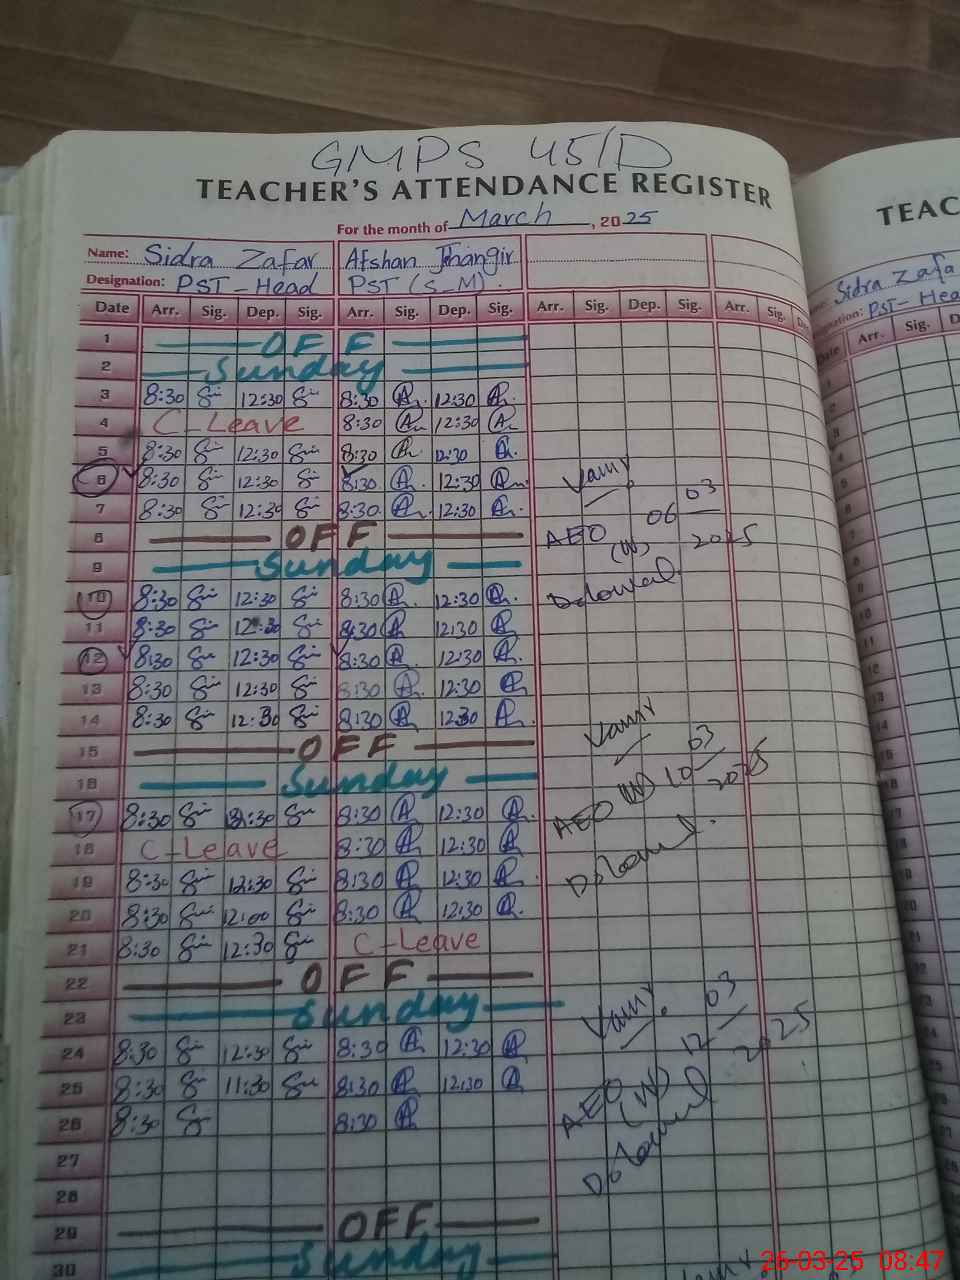 GMPS 45/D
TEACHER'S ATTENDANCE REGISTER
For the month of March, 2025
Name: Sidra Zafar Afshan Jhangir
Designation: PST Head PST (S_M)
Date Arr. Sig. Dep. Sig. Arr. Sig. Dep. Sig. Arr. Sig. Dep. Sig. Arr. Sig.
1 OFF
2 Sunday
3 8:30 12:30 8:30 12:30
4 C-Leave 8:30 12:30
5 8:30 12:30 8:30 12:30
6 8:30 12:30 8:30 12:30
7 8:30 12:30 8:30 12:30
8 OFF
9 Sunday
10 8:30 12:30 8:30 12:30
11 8:30 12:30 8:30 12:30
12 8:30 12:30 8:30 12:30
13 8:30 12:30 8:30 12:30
14 8:30 12:30 8:30 12:30
15 OFF
16 Sunday
17 8:30 12:30 8:30 12:30
18 C-Leave 8:30 12:30
19 8:30 12:30 8:30 12:30
20 8:30 12:00 8:30 12:30
21 8:30 12:30 C-Leave
22 OFF
23 Sunday
24 8:30 12:30 8:30 12:30
25 8:30 11:30 8:30 12:30
26 8:30 8:30
27
28
29 OFF
30 Sunday
06 03 2025
AEO (W)
10 03 2025
AEO (W)
12 03 2025
AEO (W)
TEAC
Sidra Zafa
PST-Hea
Date Arr. Sig. D
26-03-25 08:47